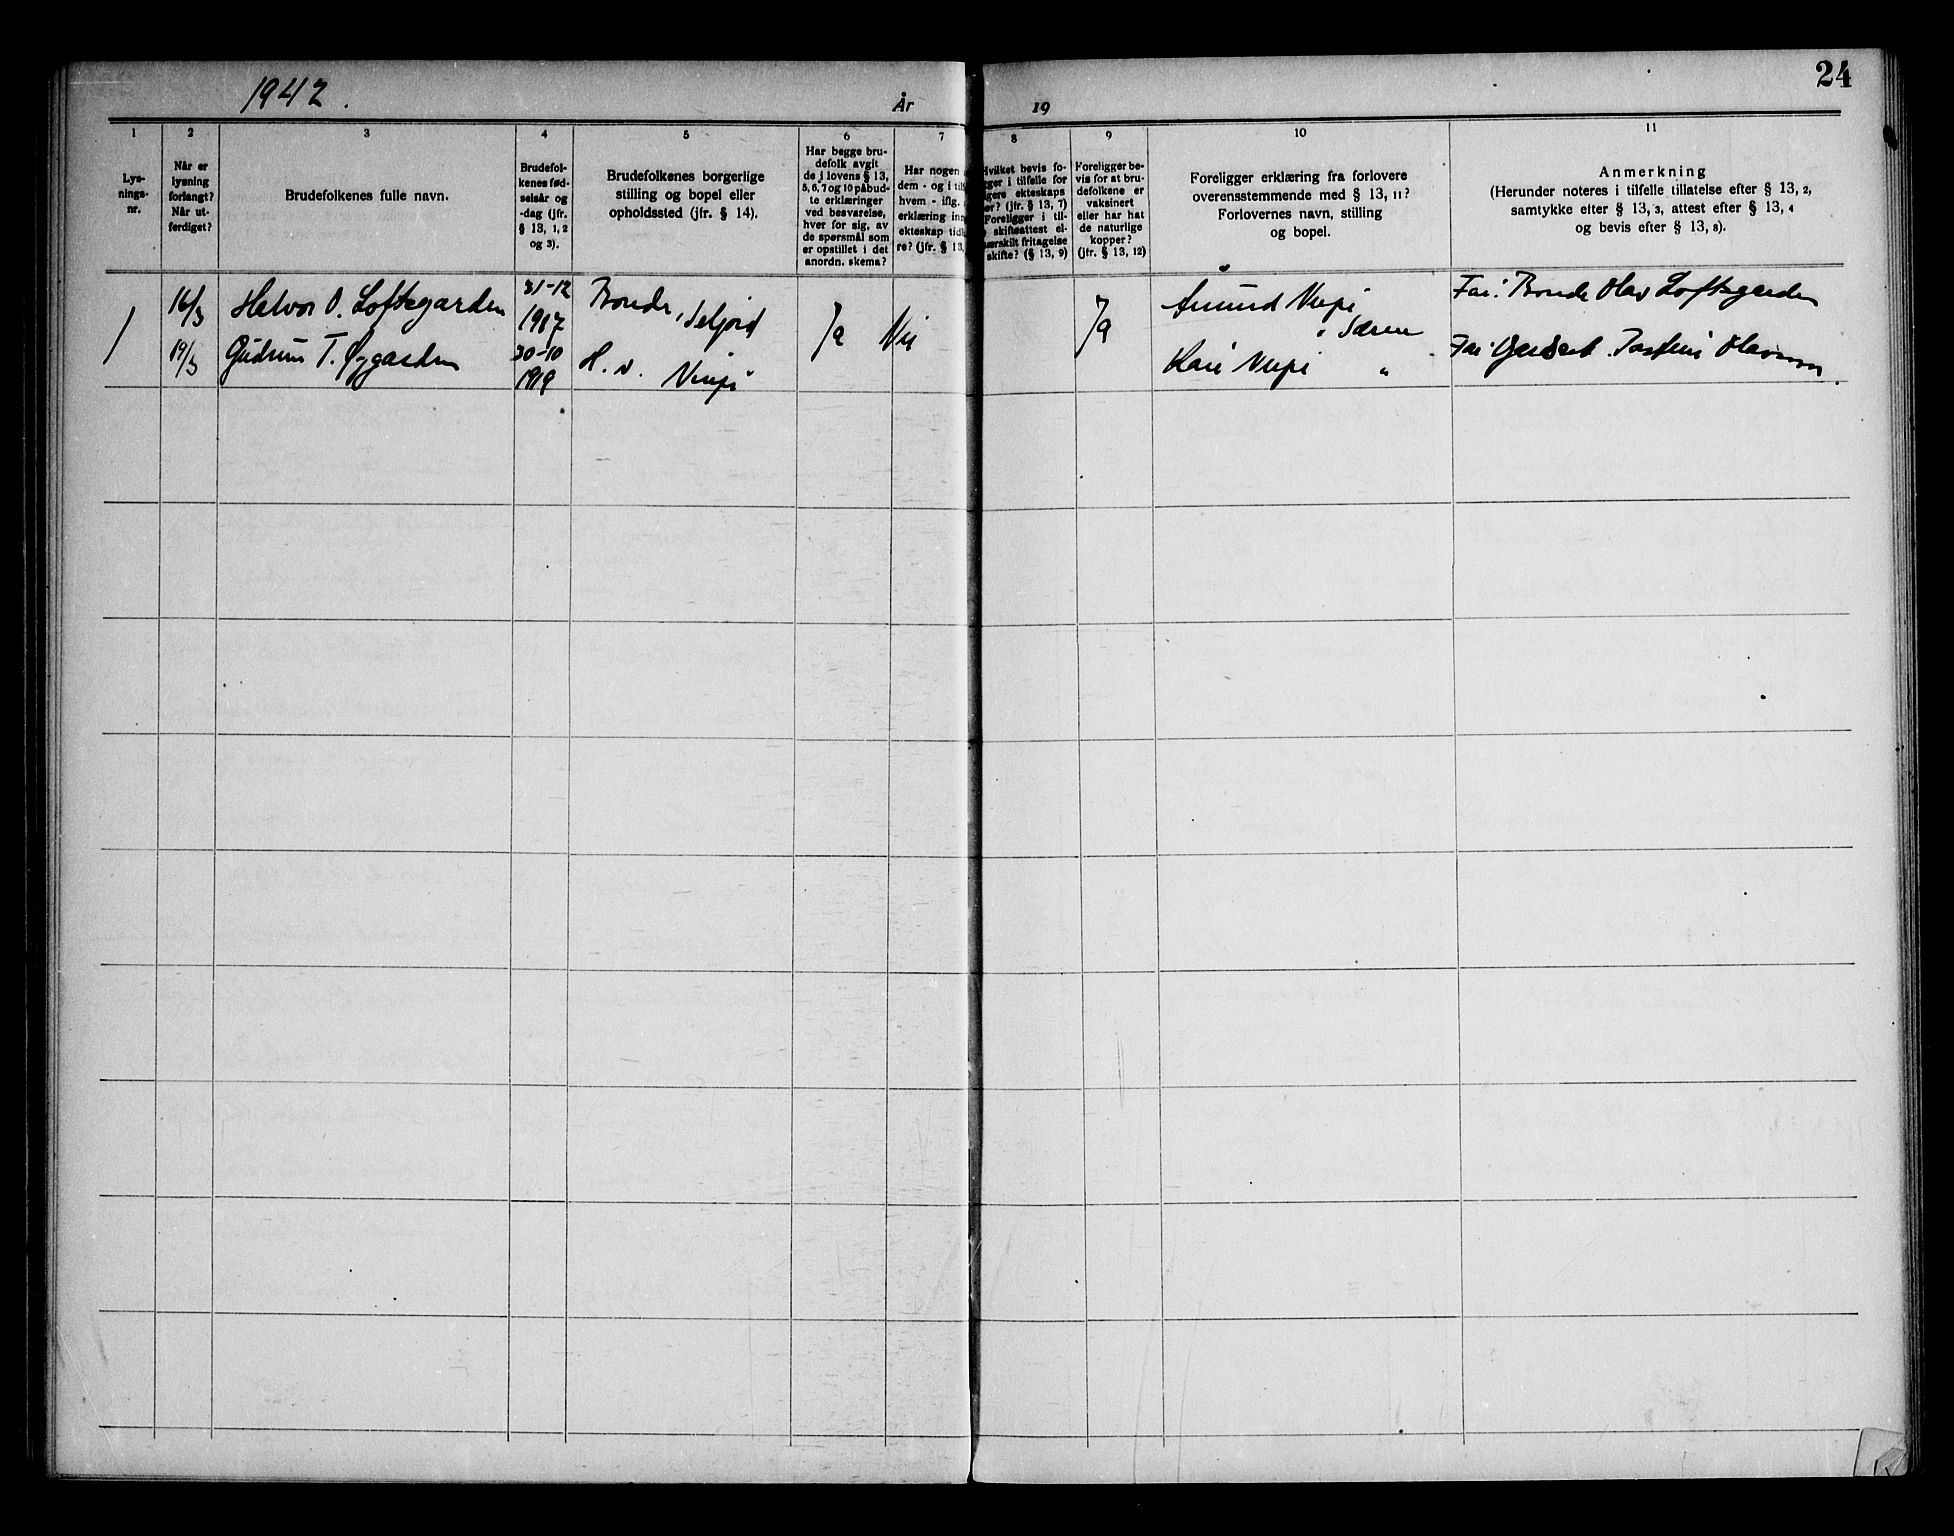 1942.
År
19
24
1
2
3
4
5
6
7
8
9
10
11
Lys-
nings-
nr.
Når er
lysning
forlangt?
Når ut-
ferdiget?
Brudefolkenes fulle navn.
Brudefol-
kenes fød-
selsår og
-dag (jfr.
§ 13, 1, 2
og 3).
Brudefolkenes borgerlige
stilling og bopel eller
opholdssted (jfr. § 14).
Har begge bru-
defolk avgit
de i lovens § 13,
5, 6, 7 og 10 påbud-
te erklæringer
ved besvarelse,
hver for sig, av
de spørsmål som
er opstillet i det
anordn. skema?
Har nogen
dem - og i til
hvem - iflg.
erklæring inn
ekteskap tid
re? (jfr. § 13,
Hvilket bevis fo-
gger i tilfelle for
igere ekteskaps
ør? (jfr. § 13, 7)
Foreligger i til-
skifteattest el-
særskilt fritagelse
skifte? (§ 13, 9)
Foreligger be-
vis for at bru-
defolkene er
vaksinert
eller har hat
de naturlige
kopper?
(jfr. § 13, 12)
Foreligger erklæring fra forlovere
overensstemmende med § 13, 11?
Forlovernes navn, stilling
og bopel.
Anmerkning
(Herunder noteres i tilfelle tillatelse efter § 13, 2,
samtykke efter § 13, 3, attest efter § 13, 4
og bevis efter § 13, 8).
1
16/3
19/3
Halvor O. Loftsgarden
Gudrun T. Øygarden
31-12
1917
30-10
1919
Bonde, Seljord
H. d.
Ja
Nei
Ja
Åmund
Kari
"
Far: Bonde Olav Loftsgarden
Far: Olavson.